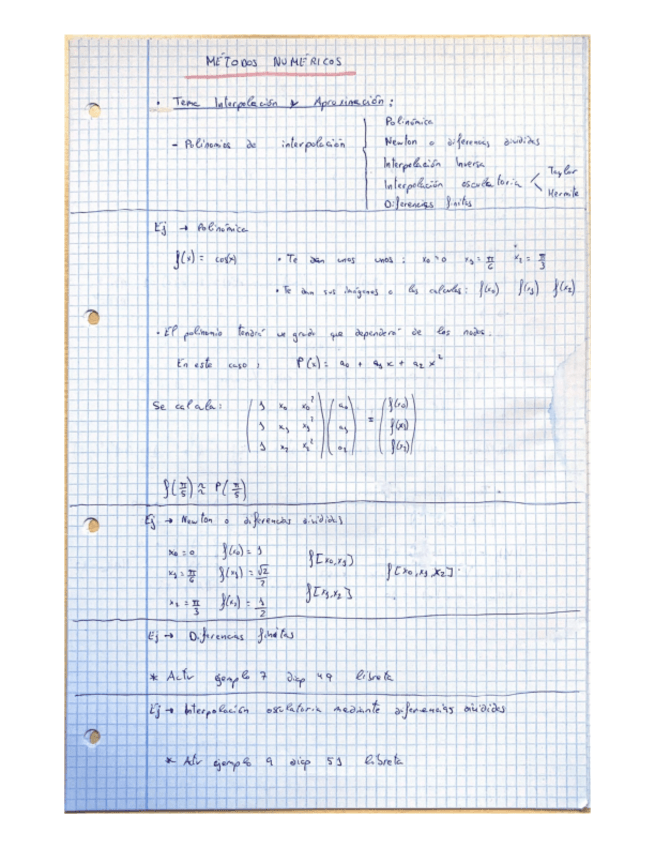 MÉTODOS NUMÉRICOS
• Tema Interpolación y Aproximación:
- Polinomios de interpolación
Polinómica
Newton o diferencias divididas
Interpelación Inversa
Interpolación osculatoria < Taylor
Hermite
Diferencias finitas
Ej → Polinómica
f(x) = cos(x) • Te dan unos : x₀ = 0 x₁ = π/6 x₂ = π/3
• Te dan sus imágenes o las calculas: f(x₀) f(x₁) f(x₂)
• El polinomio tendrá un grado que dependerá de los nodos.
En este caso, P(x) = a₀ + a₁x + a₂x²
Se calcula: (1 x₀ x₀²) (a₀) (f(x₀))
(1 x₁ x₁²) (a₁) = (f(x₁))
(1 x₂ x₂²) (a₂) (f(x₂))
f(π/5) ≈ P(π/5)
Ej → Newton o diferencias divididas
x₀ = 0 f(x₀) = 1 f[x₀,x₁]
x₁ = π/6 f(x₁) = √2/2 f[x₀,x₁,x₂]
x₂ = π/3 f(x₂) = 1/2 f[x₁,x₂]
Ej → Diferencias finitas
* ejemplo 7 diap 49 libreta
Ej → Interpolación osculatoria mediante diferencias divididas
* ejemplo 9 diap 51 libreta